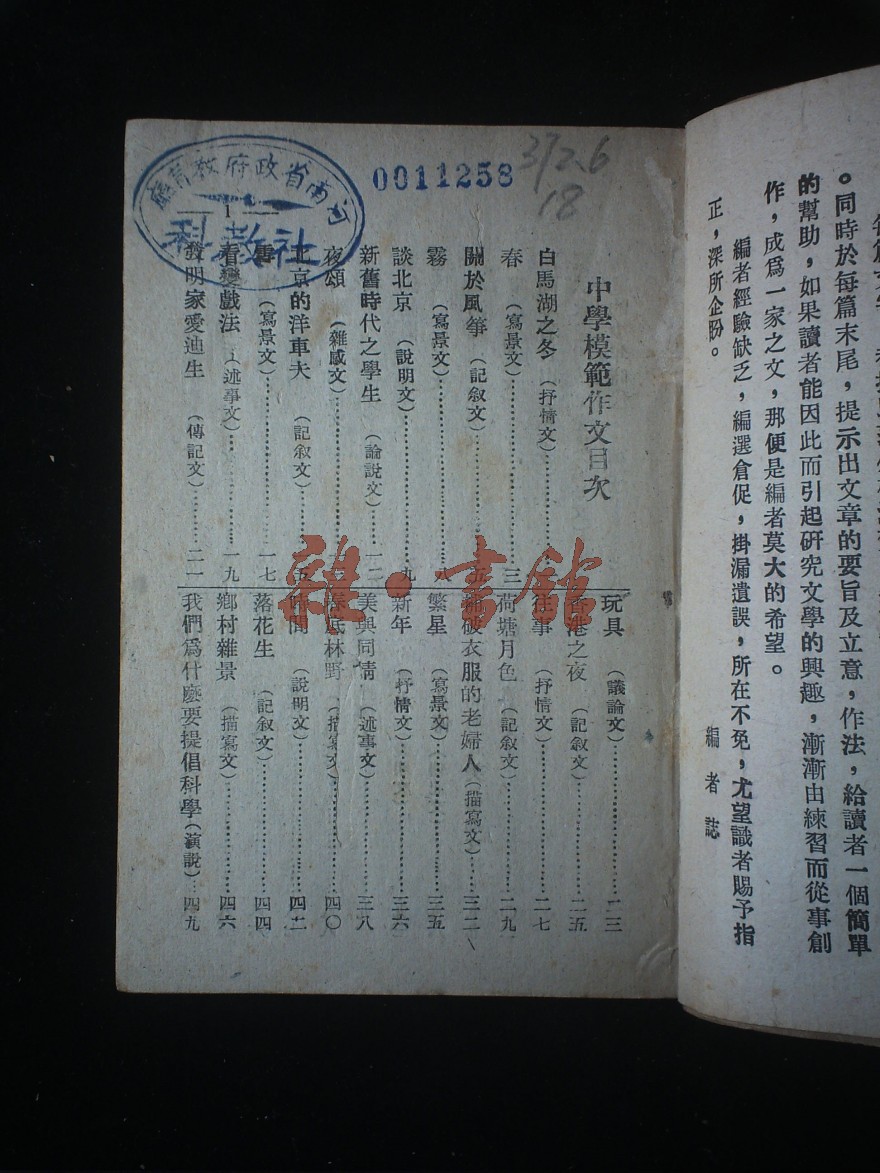 。同時於每篇末尾，提示出文章的要旨及立意，作法，給讀者一個簡單
的幫助，如果讀者能因此而引起研究文學的興趣，漸漸由練習而從事創
作，成爲一家之文，那便是編者莫大的希望。
編者經驗缺乏，編選倉促，掛漏遺誤，所在不免，尤望識者賜予指
正，深所企盼。
編者誌
河南省政府教育廳
社教科
0011258
372.6
18
1
中學模範作文目次
白馬湖之冬（抒情文）
春（寫景文）三
關於風箏（記叙文）五
霧（寫景文）八
談北京（說明文）九
新舊時代之學生（論說文）一二
夜頌（雜感文）
北京的洋車夫（記叙文）
（寫景文）一七
看變戲法（述事文）一九
發明家愛迪生（傳記文）二一
玩具（議論文）二三
香港之夜（記叙文）二五
往事（抒情文）二七
荷塘月色（記叙文）二九
補破衣服的老婦人（描寫文）三二
繁星（寫景文）三五
新年（抒情文）三六
美與同情（述事文）三八
春底林野（描寫文）四〇
時間（說明文）四二
落花生（記叙文）四四
鄉村雜景（描寫文）四六
我們爲什麽要提倡科學（演說）四九
雜·書館